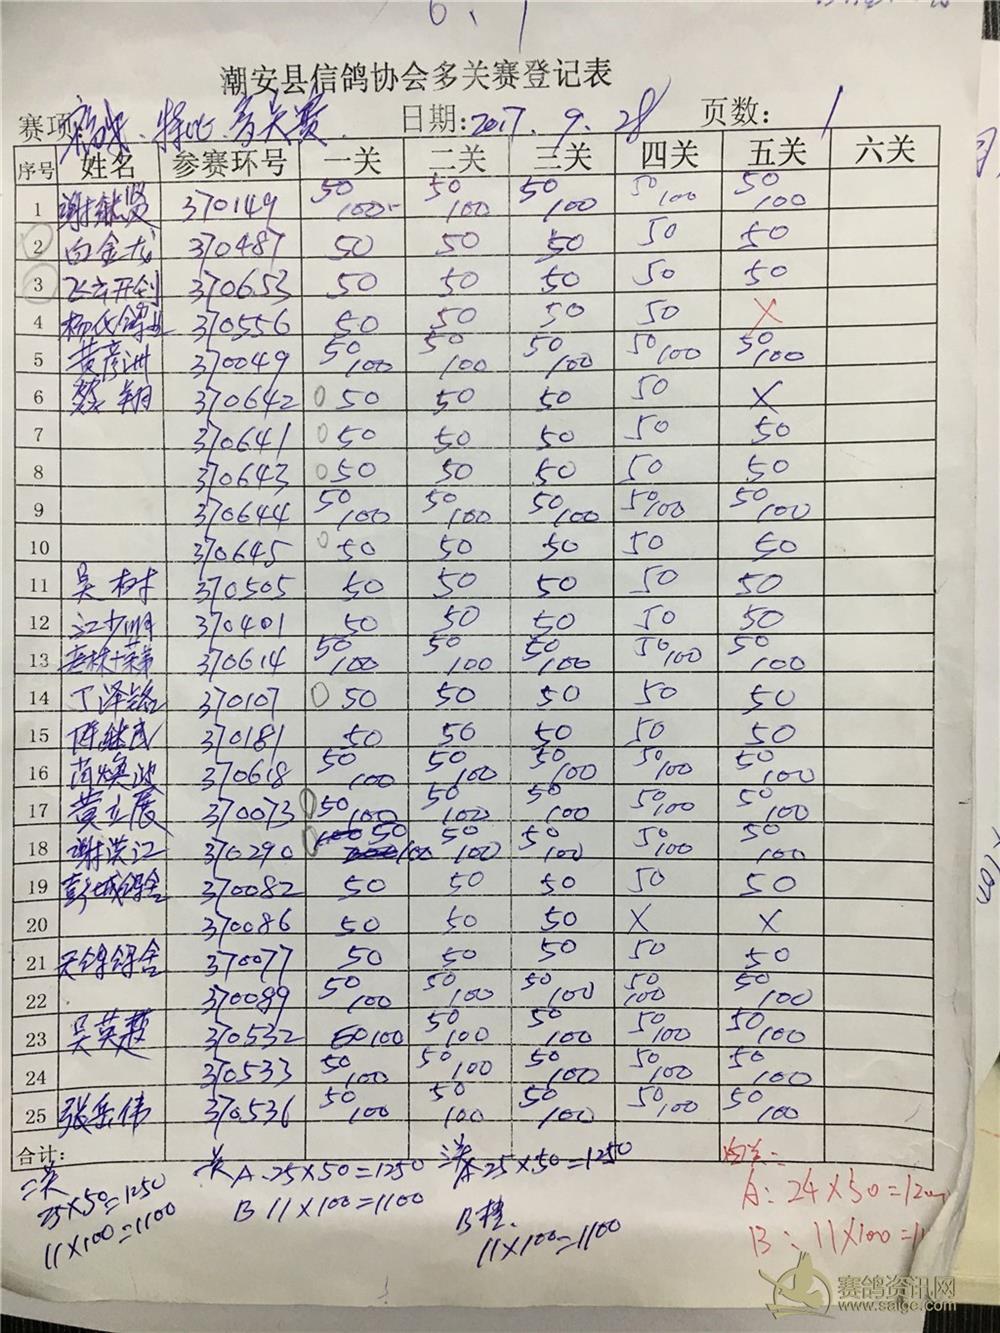 6、1
潮安县信鸽协会多关赛登记表
赛项: 特比、多关赛. 日期:2017.9.28 页数: 1
序号 姓名 参赛环号 一关 二关 三关 四关 五关 六关
1 谢继贤 370149 50/100 50/100 50/100 50/100 50/100
2 白金龙 370487 50 50 50 50 50
3 飞云开创 370653 50 50 50 50 50
4 杨氏鸽业 370556 50 50 50 50 X
5 黄彦洲 370049 50/100 50/100 50/100 50/100 50/100
6 蔡翔 370642 0 50 50 50 50 X
7 370641 0 50 50 50 50 50
8 370643 0 50 50 50 50 50
9 370644 50/100 50/100 50/100 50/100 50/100
10 370645 0 50 50 50 50 50
11 吴树 370505 50 50 50 50 50
12 江少明 370401 50 50 50 50 50
13 370614 50/100 50/100 50/100 50/100 50/100
14 丁泽铭 370107 0 50 50 50 50 50
15 陈继武 370181 50 50 50 50 50
16 肖焕波 370618 50/100 50/100 50/100 50/100 50/100
17 黄立展 370073 0 50/100 50/100 50/100 50/100 50/100
18 谢洪江 370290 0 50 100 50/100 50/100 50/100 50/100
19 彭城鸽舍 370082 50 50 50 50 50
20 370086 50 50 50 X X
21 天锦鸽舍 370077 50 50 50 50 50
22 370089 50/100 50/100 50/100 50/100 50/100
23 吴英超 370532 50 100 50/100 50/100 50/100 50/100
24 370533 50/100 50/100 50/100 50/100 50/100
25 张岳伟 370536 50/100 50/100 50/100 50/100 50/100
合计:
二关
25×50=1250
11×100=1100
一关 A.25×50=1250
B 11×100=1100
三关 A 25×50=1250
B档.
11×100=1100
四关:
A: 24×50=120
B: 11×100=11
赛鸽资讯网
www.saige.com